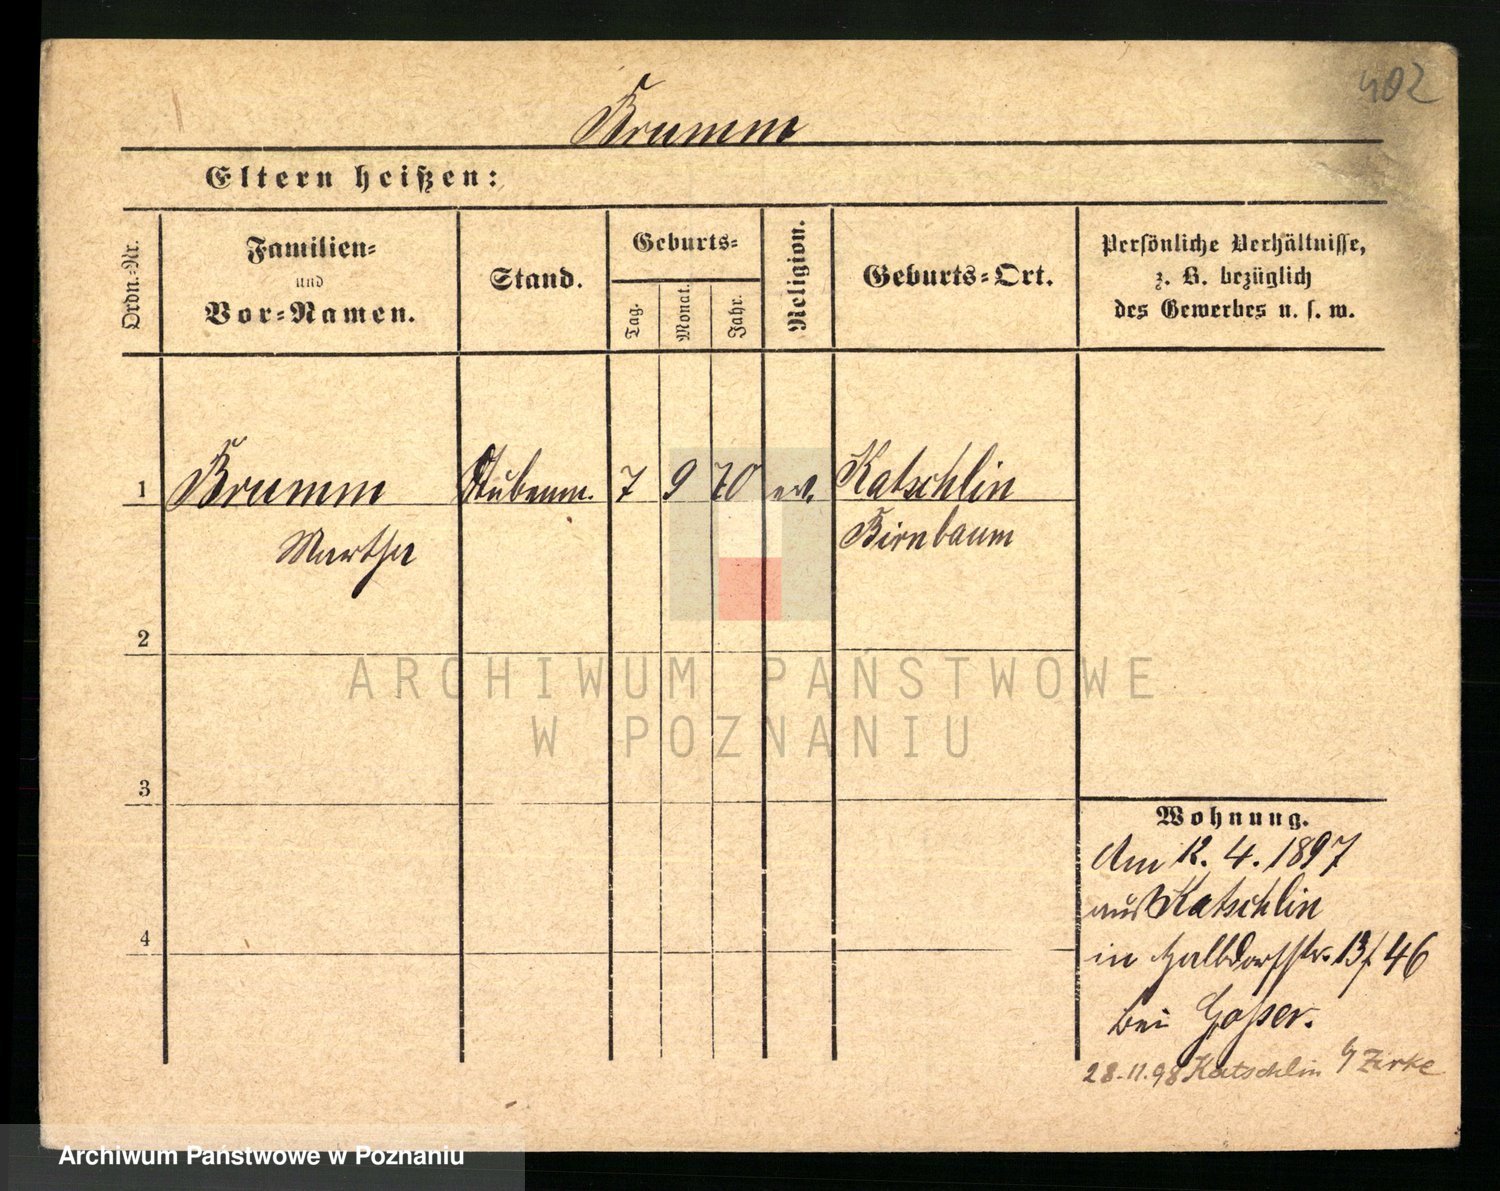 402
Brumm
Eltern heißen:
Ordn.-Nr.
Familien-
und
Vor-Namen.
Stand.
Geburts-
Tag.
Monat.
Jahr.
Religion.
Geburts-Ort.
Persönliche Verhältnisse,
z. B. bezüglich
des Gewerbes u. s. w.
1 Brumm Stubenm. 7 9 70 ev. Katschlin
Martha Birnbaum
2
ARCHIWUM PAŃSTWOWE
W POZNANIU
3
Wohnung.
Am 12. 4. 1897
aus Katschlin
in Halbdorfstr. 13/ 46
4
bei
28.11.98 Katschlin b/ Zirke
Archiwum Państwowe w Poznaniu